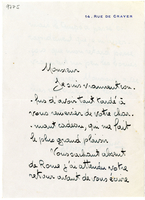 56, RUE DE GRAYER
Monsieur
Je suis vraiment con
fus d'avoir tant tardé à
vous remercier de votre char
mant cadeau, qui me fait
le plus grand plaisir.
Vous sachant absent
de Rome j'ai attendu votre
retour avant de vous écrire